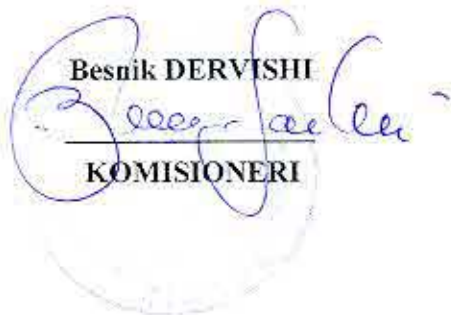 Besnik DERVISHI
KOMISIONERI